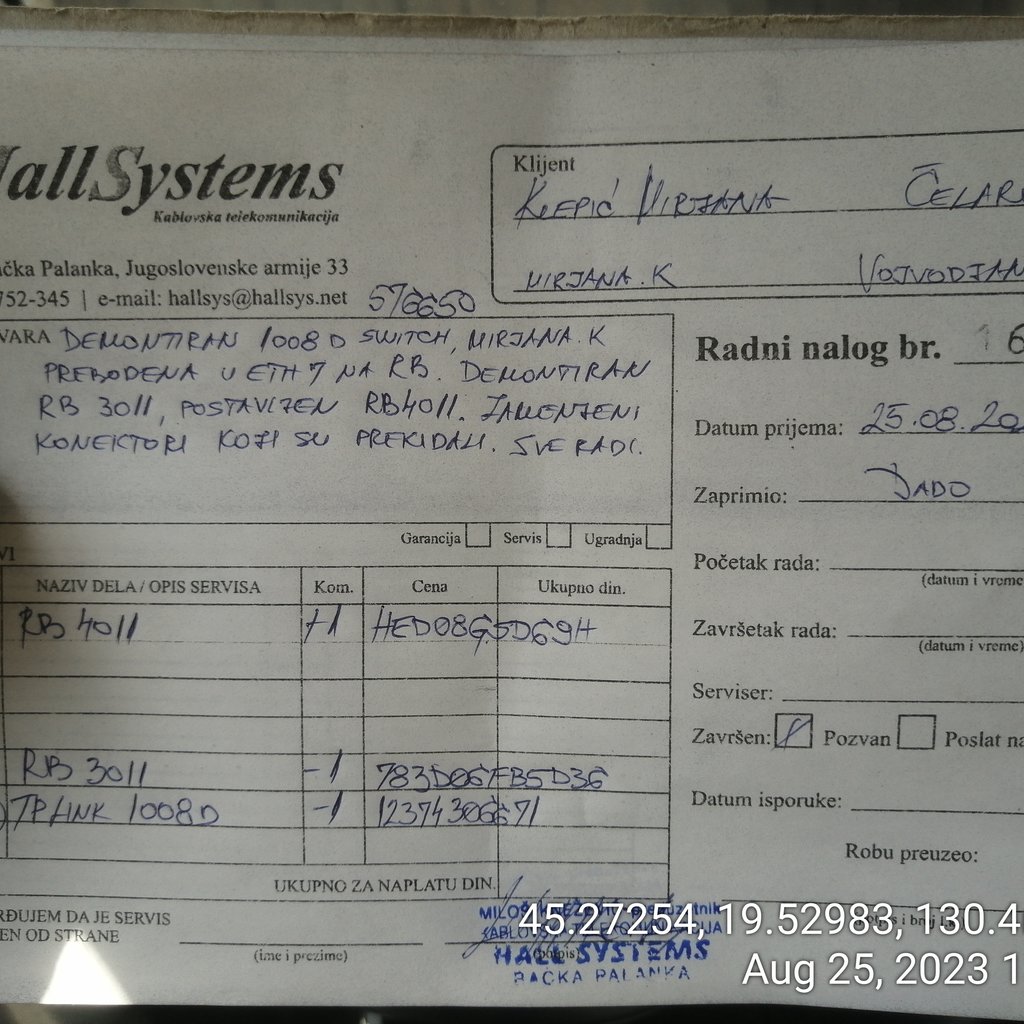 HallSystems
Kablovska telekomunikacija
ačka Palanka, Jugoslovenske armije 33
752-345 | e-mail: hallsys@hallsys.net
576650
Klijent
KLEPIĆ MIRJANA ČELAR
MIRJANA.K VOJVODJAN
VARA DEMONTIRAN 1008D SWITCH, MIRJANA.K
PREBODENA U ETH7 NA RB. DEMONTIRAN
RB 3011, POSTAVLJEN RB4011. ZAMENJENI
KONEKTORI KOJI SU PREKIDALI. SVE RADI.
Garancija Servis Ugradnja
Radni nalog br. 16
Datum prijema: 25.08.20
Zaprimio: DADO
Početak rada:
(datum i vreme
Završetak rada:
(datum i vreme)
Serviser:
Završen: Pozvan Poslat na
Datum isporuke:
Robu preuzeo:
VI
NAZIV DELA / OPIS SERVISA Kom. Cena Ukupno din.
RB 4011 +1 HED08G5D69H
RB 3011 -1 783D06FB5D36
TPLINK 1008D -1 12374306671
UKUPNO ZA NAPLATU DIN.
RĐUJEM DA JE SERVIS
EN OD STRANE
(ime i prezime)
(potpis)
HALL SYSTEMS
BAČKA PALANKA
45.27254, 19.52983, 130.4
Aug 25, 2023 1